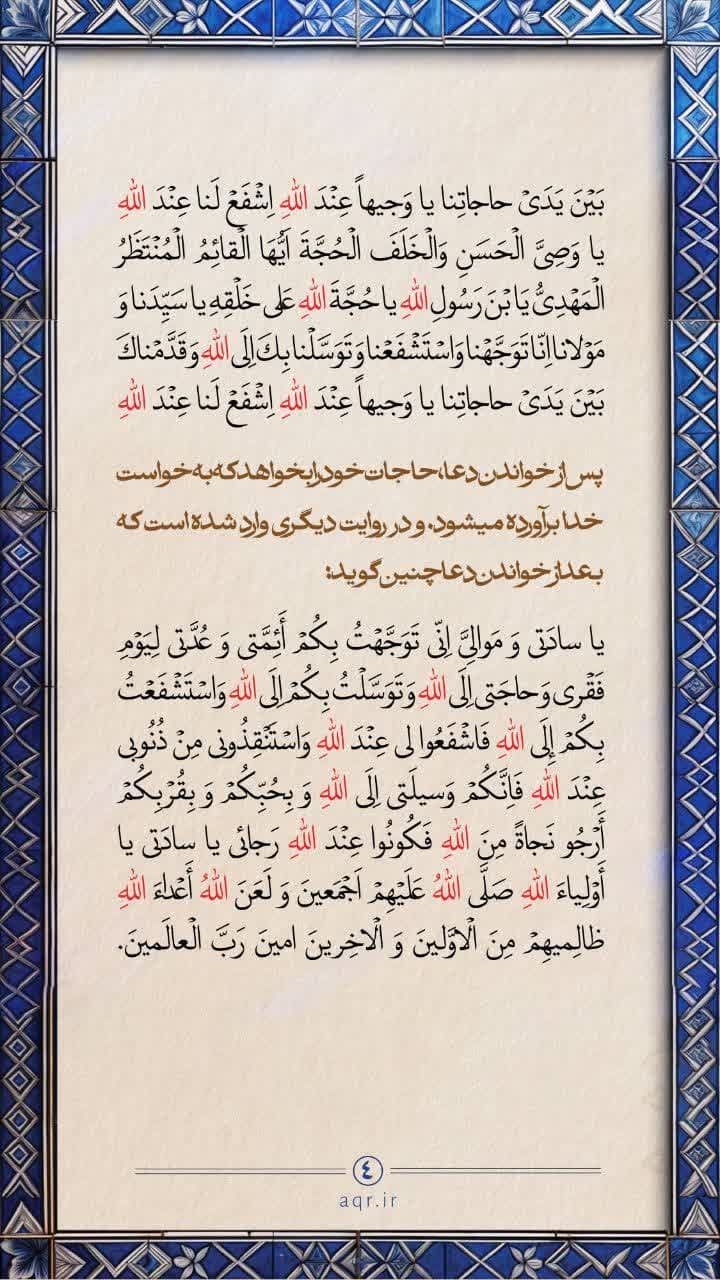 بَيْنَ يَدَىْ حاجاتِنا يا وَجيهاً عِنْدَ اللهِ اِشْفَعْ لَنا عِنْدَ اللهِ
يا وَصِىَّ الْحَسَنِ وَالْخَلَفَ الْحُجَّةَ اَيُّهَا الْقائِمُ الْمُنْتَظَرُ
الْمَهْدِىُّ يَا بْنَ رَسُولِ اللهِ يا حُجَّةَ اللهِ عَلى خَلْقِهِ يا سَيِّدَنا وَ
مَوْلانا اِنّا تَوَجَّهْنا وَاسْتَشْفَعْنا وَ تَوَسَّلْنا بِكَ اِلَى اللهِ وَ قَدَّمْناكَ
بَيْنَ يَدَىْ حاجاتِنا يا وَجيهاً عِنْدَ اللهِ اِشْفَعْ لَنا عِنْدَ اللهِ
پس از خواندن دعا، حاجات خود را بخواهد که به خواست
خدا برآورده میشود. و در روایت دیگری وارد شده است که
بعد از خواندن دعا چنین گوید:
يا سادَتى وَ مَوالِىَّ اِنّى تَوَجَّهْتُ بِكُمْ أَئِمَّتى وَ عُدَّتى لِيَوْمِ
فَقْرى وَ حاجَتى إلَى اللهِ وَ تَوَسَّلْتُ بِكُمْ إلَى اللهِ وَاسْتَشْفَعْتُ
بِكُمْ إِلَى اللهِ فَاشْفَعُوا لى عِنْدَ اللهِ وَاسْتَنْقِذُونى مِنْ ذُنُوبى
عِنْدَ اللهِ فَاِنَّكُمْ وَسيلَتى اِلَى اللهِ وَ بِحُبِّكُمْ وَ بِقُرْبِكُمْ
أَرْجُو نَجاةً مِنَ اللهِ فَكُونُوا عِنْدَ اللهِ رَجائى يا سادَتى يا
أَوْلِياءَ اللهِ صَلَّى اللهُ عَلَيْهِمْ اَجْمَعينَ وَ لَعَنَ اللهُ أَعْداءَ اللهِ
ظالِميهِمْ مِنَ الْاَوَّلينَ وَ الْاخِرينَ امينَ رَبَّ الْعالَمينَ.
٤
aqr.ir